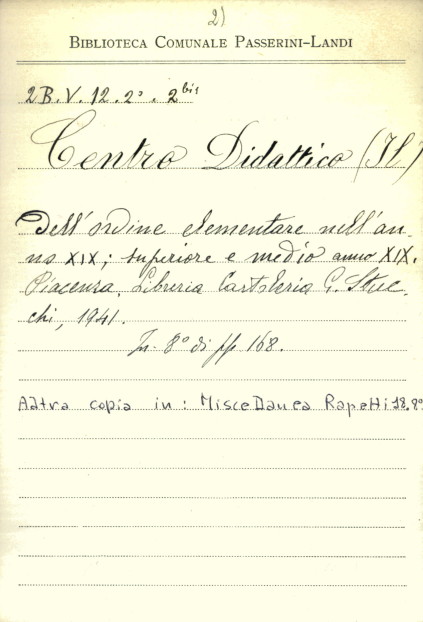 2)
BIBLIOTECA COMUNALE PASSERINI-LANDI
2B.V.12.2°.2bis
Centro Didattico (Il)
Dell'ordine elementare nell'an-
no XIX; superiore e medio anno XIX.
Piacenza, Libreria Cartoleria G. Stuc-
chi, 1941.
In-8° di pp 168.
Altra copia in: Miscellanea Rapetti 18.8°